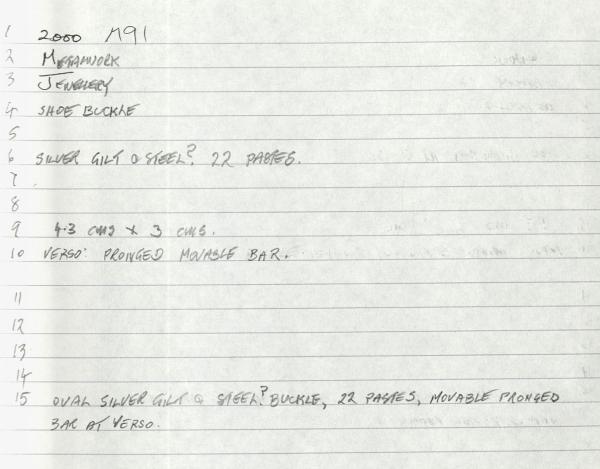 1 2000 M91
2 METALWORK
3 JEWELLERY
4 SHOE BUCKLE
5
6 SILVER GILT & STEEL? 22 PASTES.
7
8
9 4.3 CMS X 3 CMS.
10 VERSO: PRONGED MOVABLE BAR.
11
12
13
14
15 OVAL SILVER GILT & STEEL? BUCKLE, 22 PASTES, MOVABLE PRONGED
BAR AT VERSO.